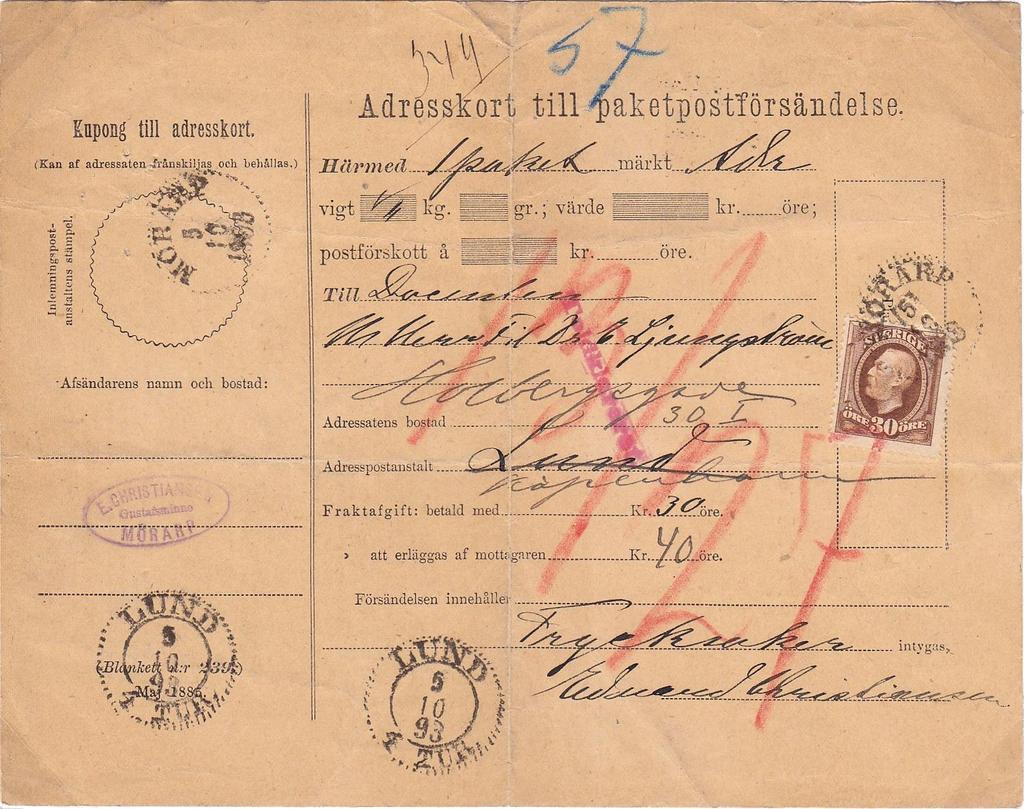 344
57
Adresskort till paketpostförsändelse.
Kupong till adresskort.
(Kan af adressaten frånskiljas och behållas.)
Inlemningspost-
anstaltens stämpel.
MÖRARP
5
10
Afsändarens namn och bostad:
E. CHRISTIANSEN
Gustafsminne
MÖRARP
LUND
5
10
93
4 TUR
(Blankett n:r 239.)
Maj 1885.
Härmed 1 paket märkt Adr
vigt kg. gr.; värde kr. öre;
postförskott å kr. öre.
Till Docenten
Herr Fil Dr E Ljungström
Holbergsgade
Adressatens bostad 30 I
Adresspostanstalt Lund
Köpenhamn
Fraktafgift: betald med Kr. 30 öre.
› att erläggas af mottagaren Kr. 40 öre.
Försändelsen innehåller
Trycksaker intygas,
Edmund Christiansen
MÖRARP
SVERIGE
ÖRE 30 ÖRE
LUND
5
10
93
4 TUR